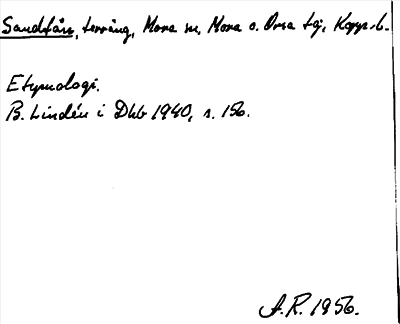 Sandfårs, terräng, Mora sn, Mora o. Orsa tg, Kopp. l.
Etymologi.
B. Lindén i Dhb 1940, s. 156.
A.R. 1956.